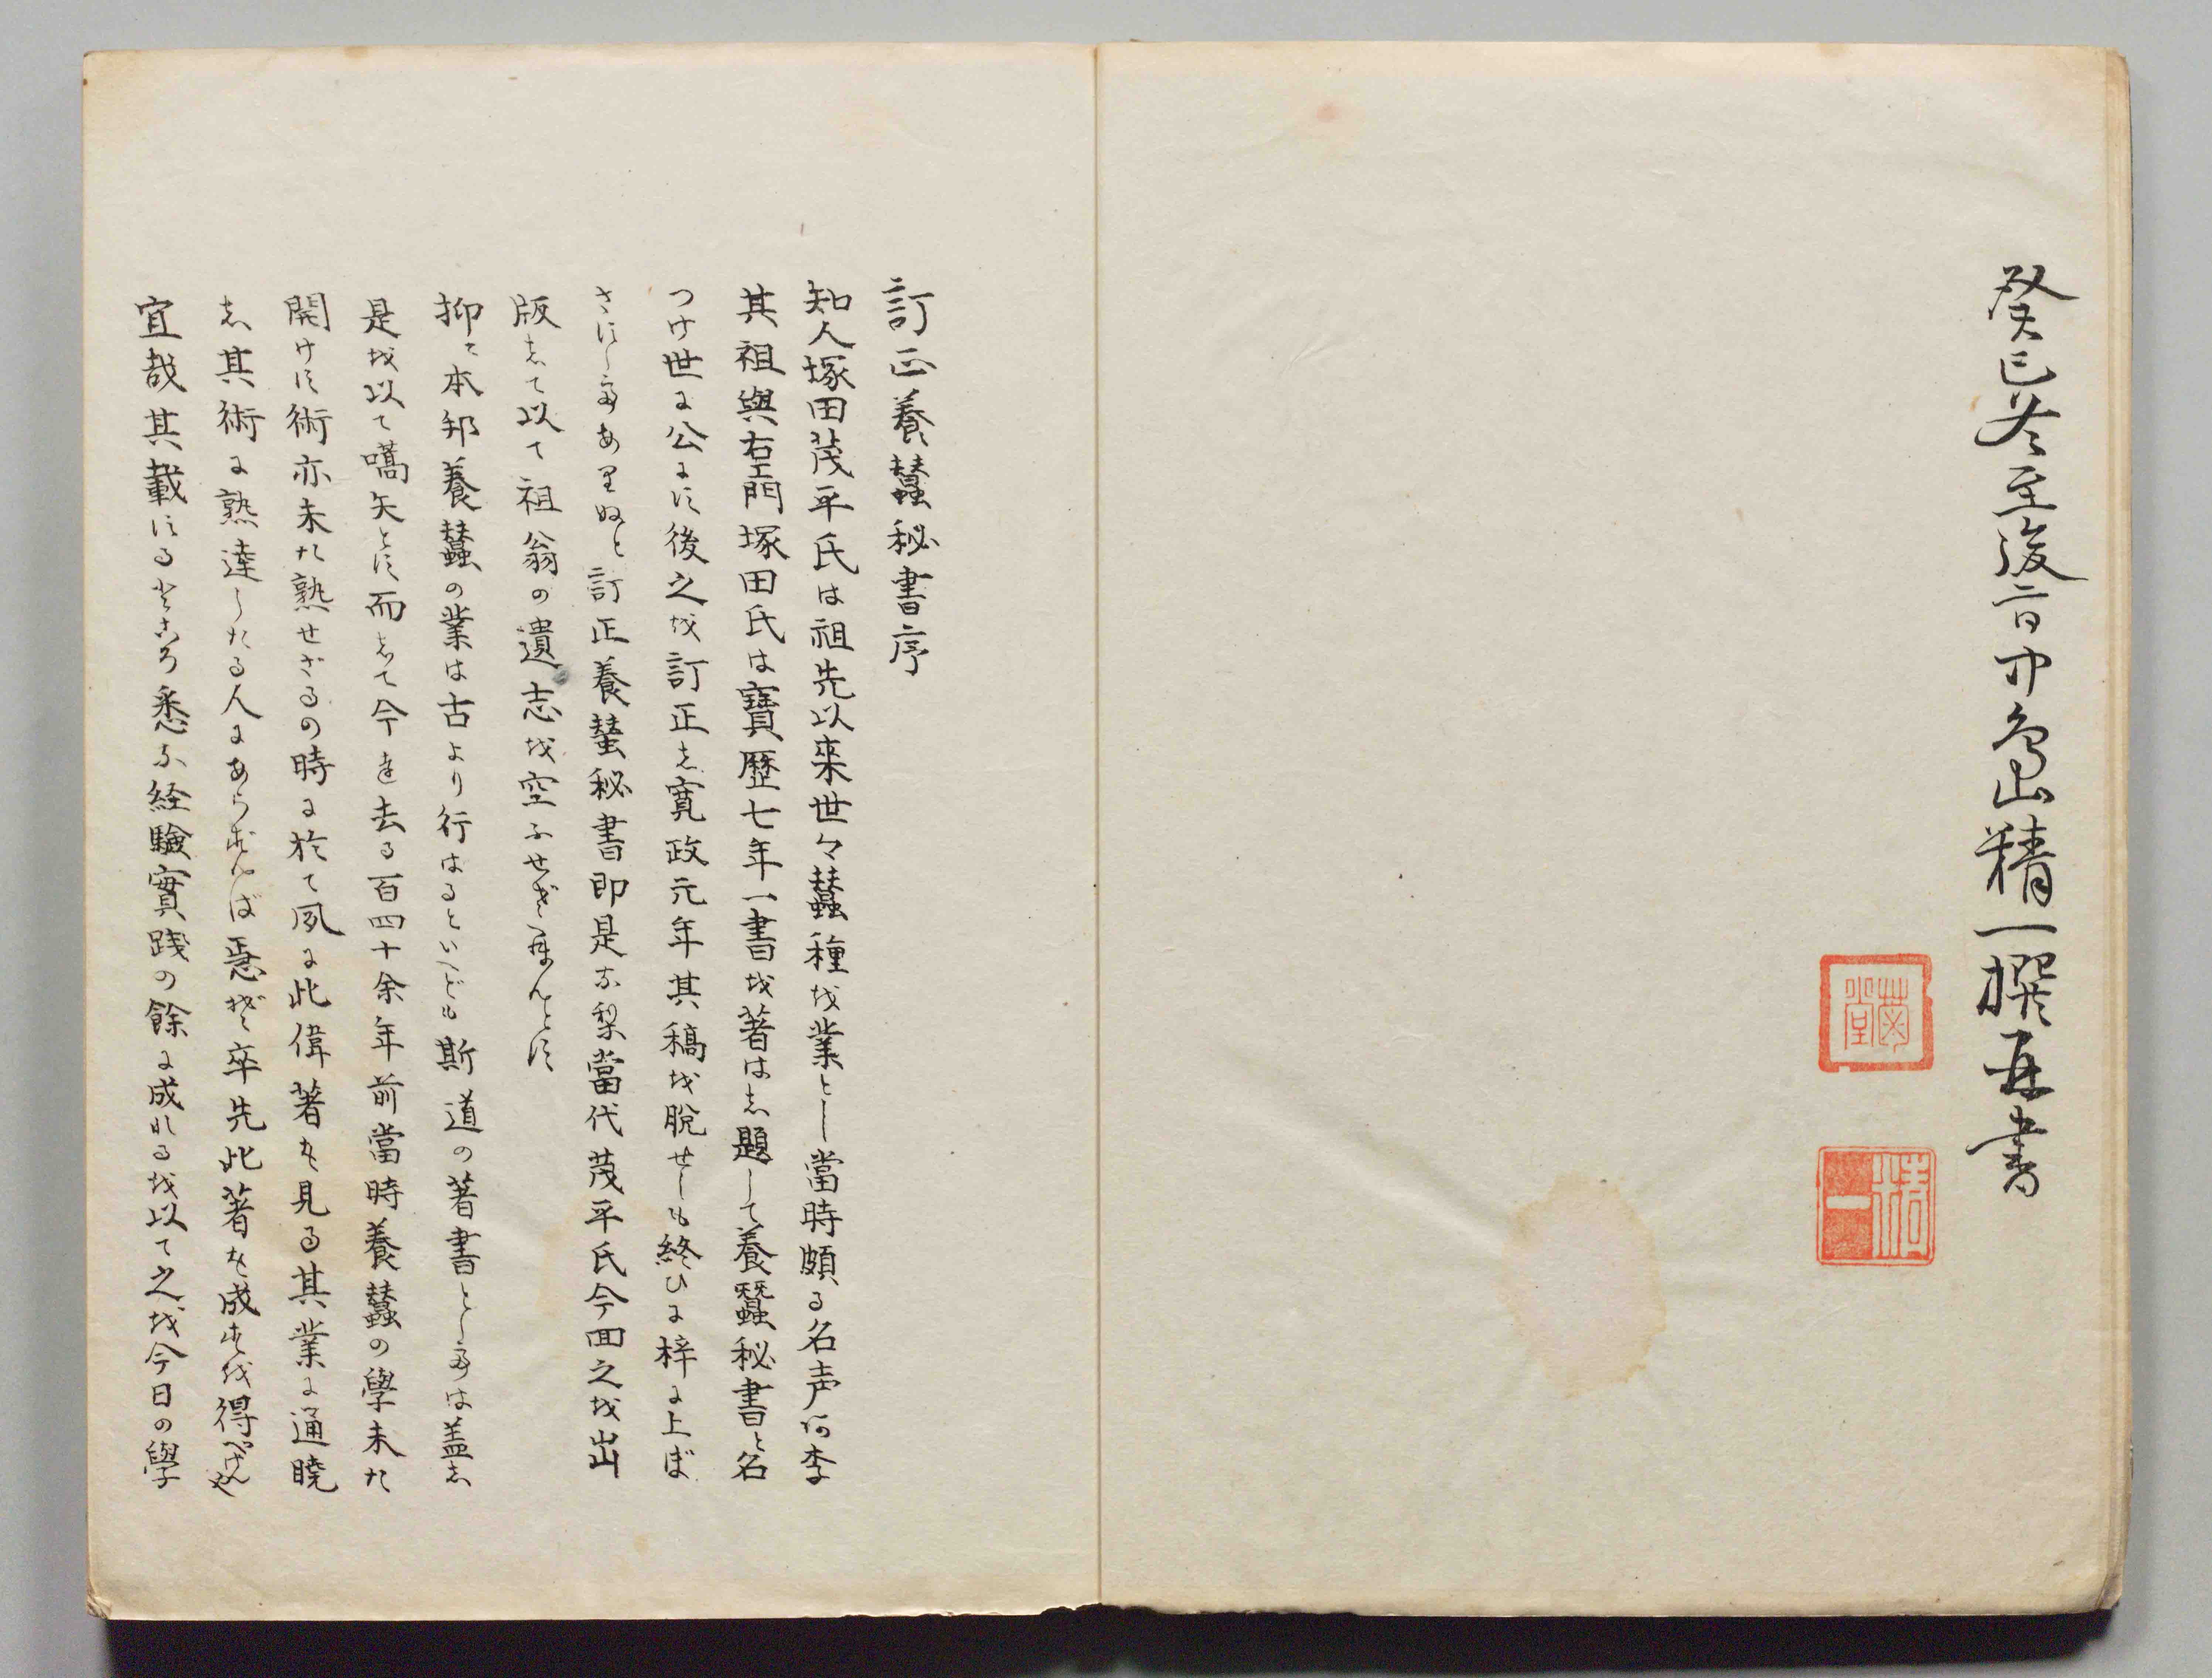 癸巳冬至後二日中島山精一撰並書
精一
訂正養蠶秘書序
知人塚田茂平氏は祖先以来世々蠶種を業とし當時頗る名声あり
其祖與右エ門塚田氏は寶歴七年一書を著はし題して養蠶秘書と名
つけ世に公にす後之を訂正し寛政元年其稿を脱せしも終ひに梓に上ぼ
さずしてありぬと訂正養蚕秘書即是なり當代茂平氏今回之を出
版して以て祖翁の遺志を空ふせざらんとす
抑々本邦養蠶の業は古より行はるといへども斯道の著書としては盖し
是を以て嚆矢とす而して今を去る百四十余年前當時養蠶の學未た
開けす術亦未た熟せざるの時に於て夙に此偉著を見る其業に通曉
し其術に熟達したる人にあらずんば焉ぞ卒先此著を成すを得べけんや
宜哉其載する所悉な経驗實践の餘に成れるを以て之を今日の學